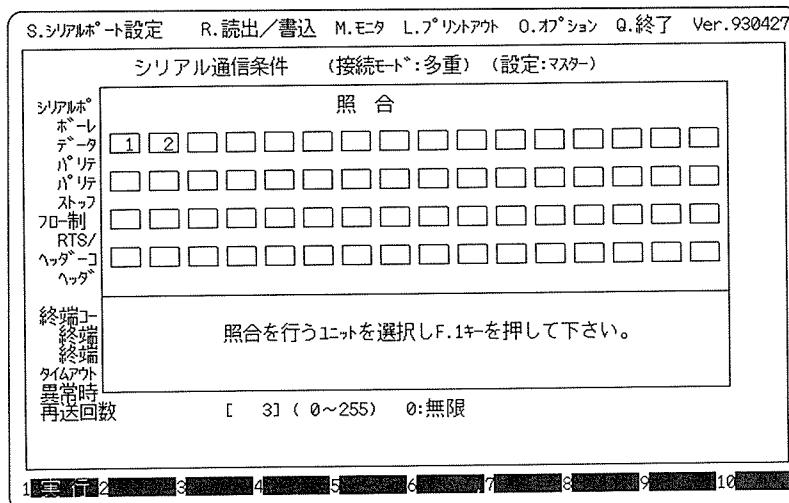 S.シリアルポート設定 R.読出/書込 M.モニタ L.プリントアウト O.オプション Q.終了 Ver.930427
シリアル通信条件 (接続モード:多重) (設定:マスター)
照 合
シリアルポ
ボーレ
データ
パリテ
パリテ
ストップ
フロー制
RTS/
ヘッダーコ
ヘッダ
1 2
終端コー
終端
終端
タイムアウト
異常時
再送回数 [ 3] ( 0~255) 0:無限
照合を行うユニットを選択しF.1キーを押して下さい。
1 実 行 2 3 4 5 6 7 8 9 10